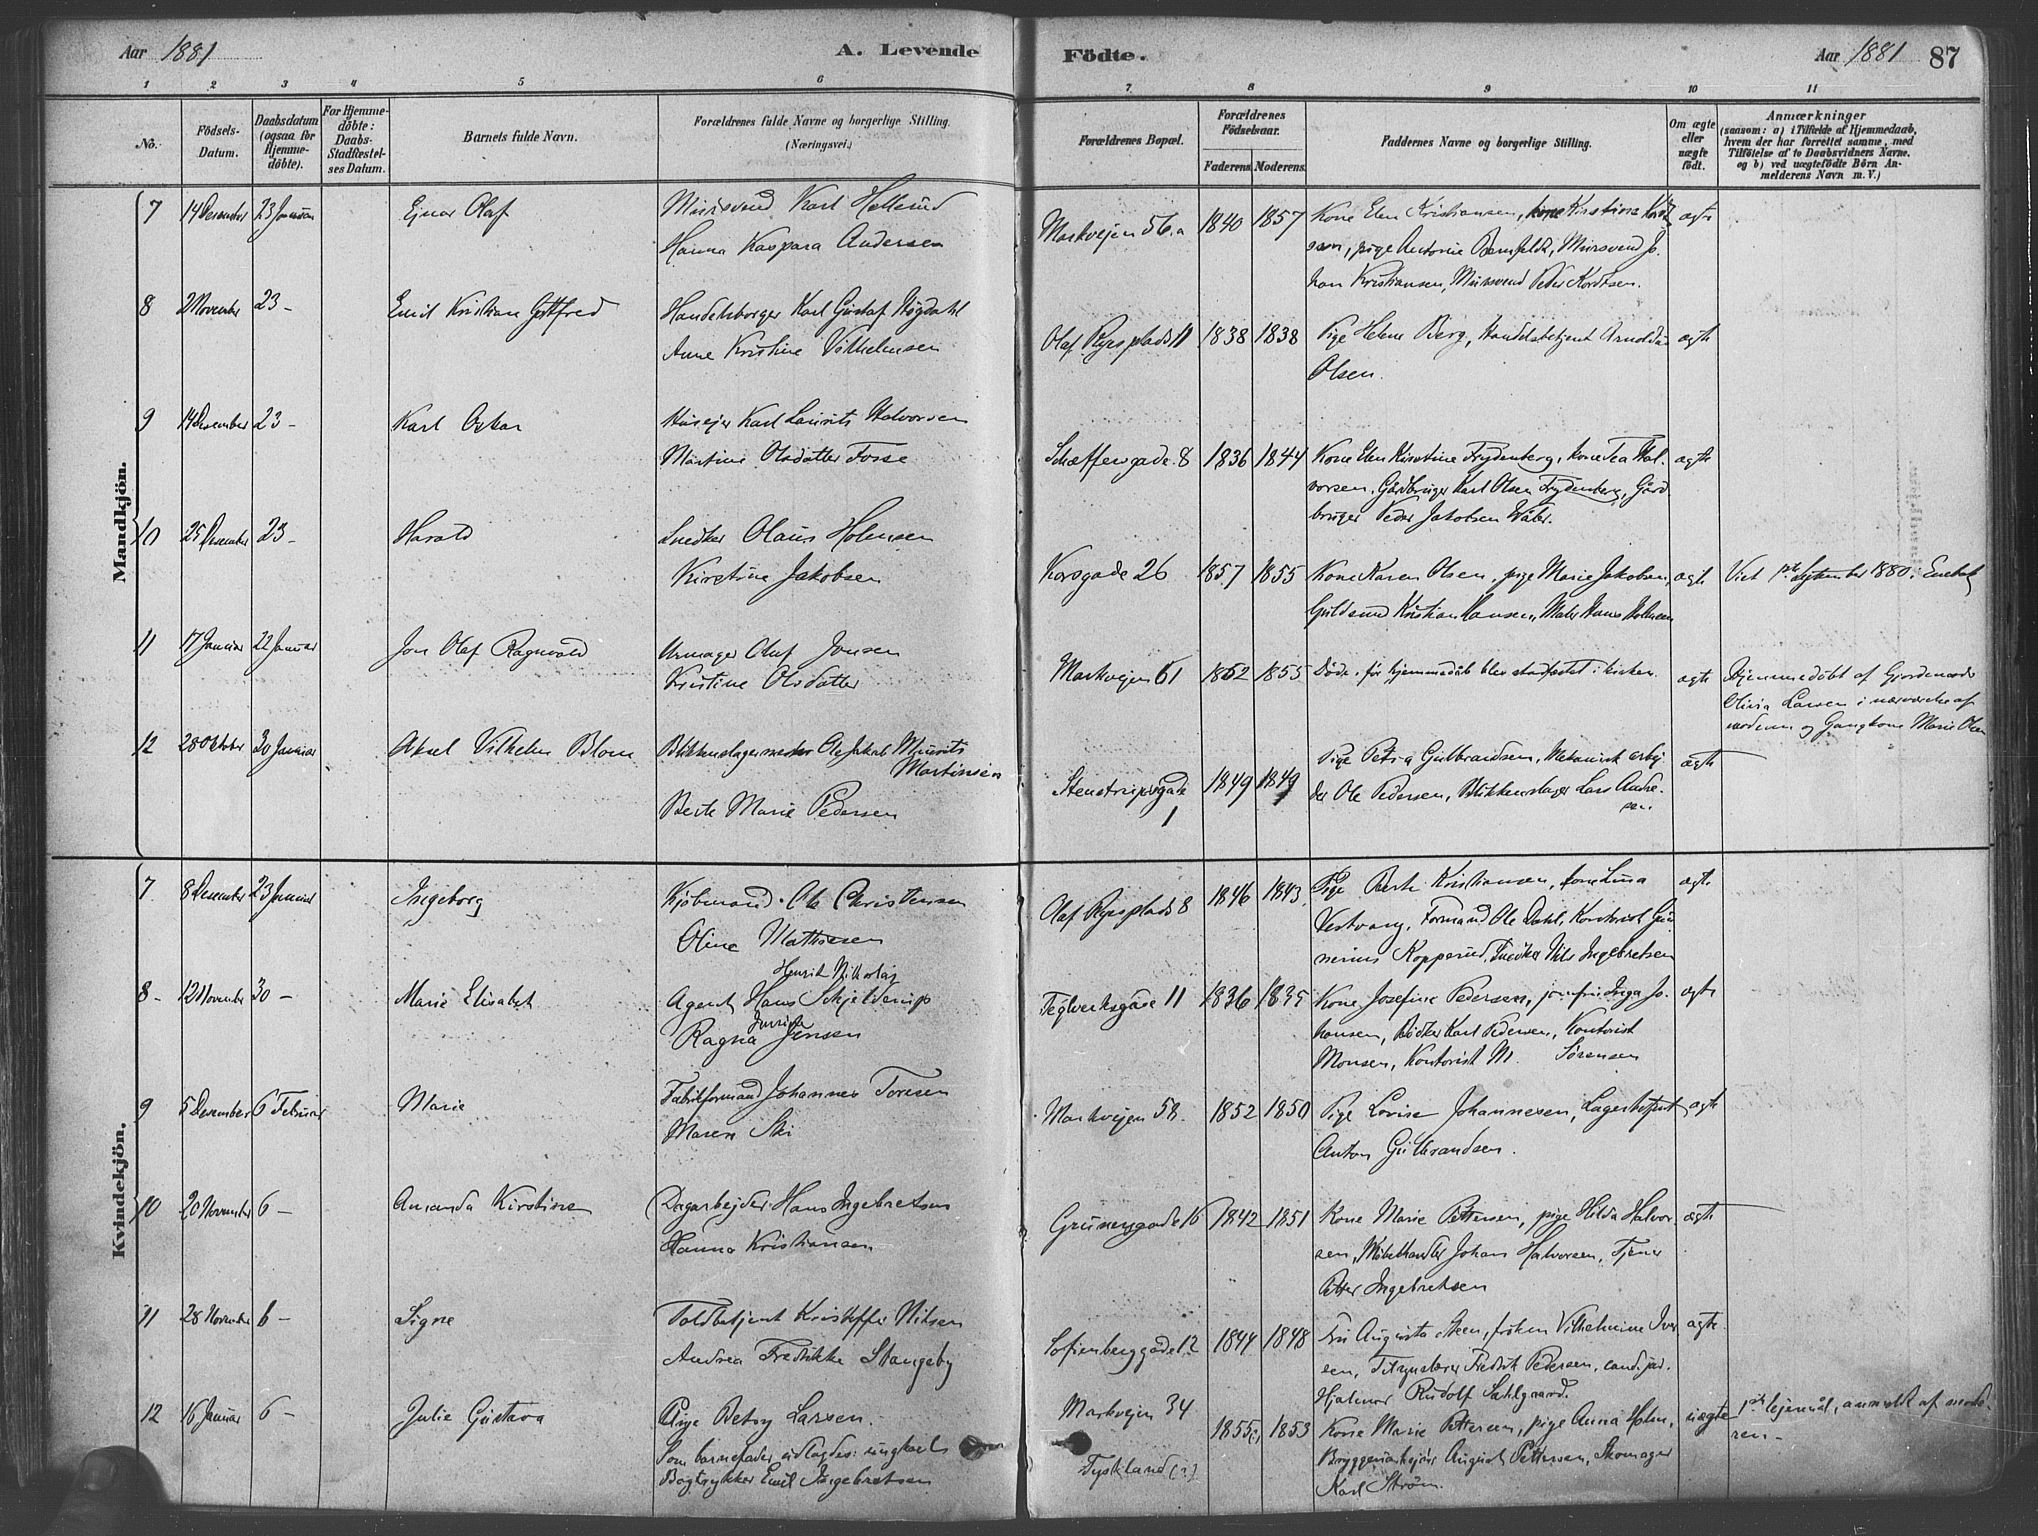 Aar 1881 A. Levende Födte. Aar 1881 87
1 2 3 4 5 6 7 8 9 10 11
No. Födsels-Datum. Daabsdatum (ogsaa for Hjemmedöbte). For Hjemmedöbte: Daabs-Stadfæstelses Datum. Barnets fulde Navn. Forældrenes fulde Navne og borgerlige Stilling. (Næringsvei.) Forældrenes Bopæl. Forældrenes Födselsaar. Faderens. Moderens. Faddernes Navne og borgerlige Stilling. Om ægte eller uægte födt. Anmærkninger (saasom: a) i Tilfælde af Hjemmedaab, hvem der har forrettet samme, med Tilföielse af to Daabsvidners Navne, og b) ved uægtefödte Börn Anmelderens Navn m. V.)
Mandkjön.
7 14 Desember 23 Januar Ejnar Olaf Mursvend Karl Hellerud
Hanna Kaspara Andersen
Markvejen 56.a 1840 1857 Kone Elen Kristiansen, kone Kirstine
sen, pige Antonie Mursvend Jo-
han Kristiansen, Mursvend Peter Kordtsen. ægte
8 2 November 23 - Emil Kristian Gottfred Handelsborger Karl Gustaf Högdahl
Anne Kristine Vilhelmsen
Olaf Ryesplads 11 1838 1838 Pige Helene Berg, Handelsbetjent Arnoldus
Olsen. ægte
9 14 Desember 23 - Karl Oskar Husejer Karl Laurits Halvorsen
Martine Olsdatter Fosse
Schæffersgade 8 1836 1844 Kone Elen Kirstine Frydenberg, Kone Tea Hal-
vorsen, Gårdbruger Karl Olsen Frydenberg, Gård-
bruger Peder Jakobsen ægte
10 25 Desember 23 - Harald Snedker Olaus Holmsen
Kirstine Jakobsen
Korsgade 26 1857 1855 Kone Karen Olsen, pige Marie Jakobsen,
Guldsmed Kristian Hansen, Maler Hans Holmsen ægte Viet September 1880 i Enebak
11 17 Januar 22 Januar Jon Olaf Ragnvald Urmager Oluf Jonsen
Kristine Olsdatter
Markvejen 61 1852 1855 Døde før hjemmedåb blev stadfæstet i kirken. ægte Hjemmedöbt af Gjordemoder
Olivia Larsen i nærværelse af
moderen og Gangkone Marie Olsen
12 28 Oktober 30 Januar Aksel Vilhelm Blom Blikkenslagermester Ole Jakob Maurits
Martinsen
Berte Marie Pedersen
Stenstrupsgade
1 1849 1849 Pige Petra Gulbrandsen, Mekanisk arbej-
der Ole Pedersen, Blikkenslager Lars Andre-
sen. ægte
Kvindekjön.
7 8 Desember 23 Januar Ingeborg Kjöbmand Ole Christensen
Oline Mathiesen
Olaf Ryesplads 8 1846 1843 Pige Berte Kristiansen, Kone Lina
Vestvang, Formand Ole Dahl, Kontorist Gu-
nerius Kopperud, Snedker Nils Ingebretsen ægte
8 - 12 November 30 - Marie Elisabet Henrik Nikolaj
Agent Hans Schjelderup
Ragna Jensen
Teglverksgade 11 1836 1835 Kone Josefine Pedersen, jomfru Inga Jo-
hansen, Bödker Karl Pedersen, Kontorist
Monsen, Kontorist M. Sørensen ægte
9 5 Desember 6 Februar Marie Fabrikformand Johannes Toresen
Maren Ski
Markvejen 58. 1852 1850 Pige Lovise Johannesen, Lagerbetjent
Anton Gulbrandsen. ægte
10 20 November 6 - Amanda Kirstine Dagarbejder Hans Ingebretsen
Hanna Kristiansen
Grunersgade 16 1842 1851 Kone Marie Pettersen, pige Hilda Halvor-
sen, Möbelhandler Johan Halvorsen, Tjener
Petter Ingebretsen ægte
11 28 November 6 - Signe Toldbetjent Kristoffer Nilsen
Andrea Fredrikke Stangeby
Sofienberggade 12 1844 1848 Fru Augusta Steen, frøken Vilhelmine Iver-
sen, Fredrik Pedersen, cand. jur.
Hjalmar Rudolf Sahlgaard. ægte
12 16 Januar 6 - Julie Gustava Pige Betsy Larsen.
Som barnefader udlagdes: ungkarl
Bogtrykker Emil Ingebretsen
Markvejen 34
Tyskland (?) 1855(?) 1853 Kone Marie Pettersen, pige Anna Holm,
Bryggeriarbejder August Pettersen, Skomager
Karl Strøm. uægte 1ste lejermål, anmeldt af mode-
ren -